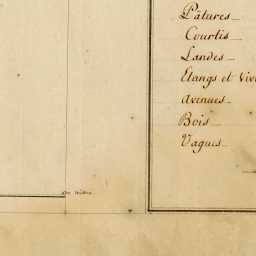 Pâtures_
Courtis_
Landes_
Etangs et viv
Avenues_
Bois_
Vagues_